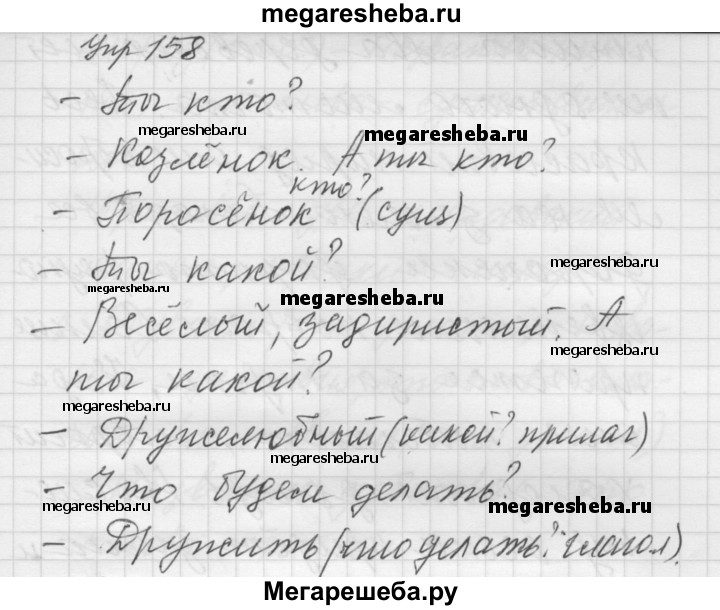 megaresheba.ru
Упр 158
- Ты кто?
megaresheba.ru
megaresheba.ru
- Козлёнок. А ты кто?
кто?
- Поросёнок (сущ)
- Ты какой?
megaresheba.ru
megaresheba.ru
megaresheba.ru
- Весёлый, задиристый. А
megaresheba.ru
ты какой?
megaresheba.ru
- Дружелюбный (какой? прилаг)
megaresheba.ru
- Что будем делать?
megaresheba.ru
megaresheba.ru
- Дружить (что делать? глагол).
Мегарешеба.ру